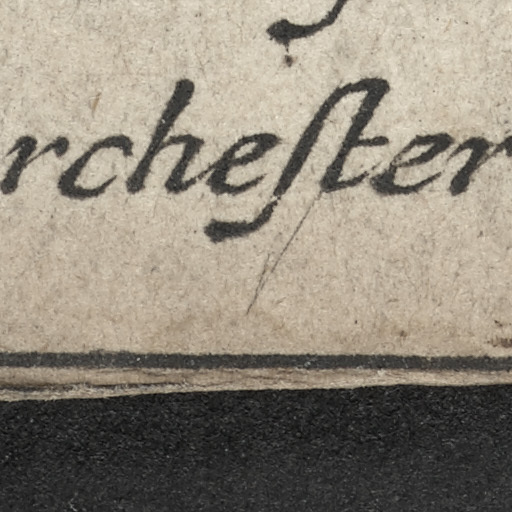 rcheſter